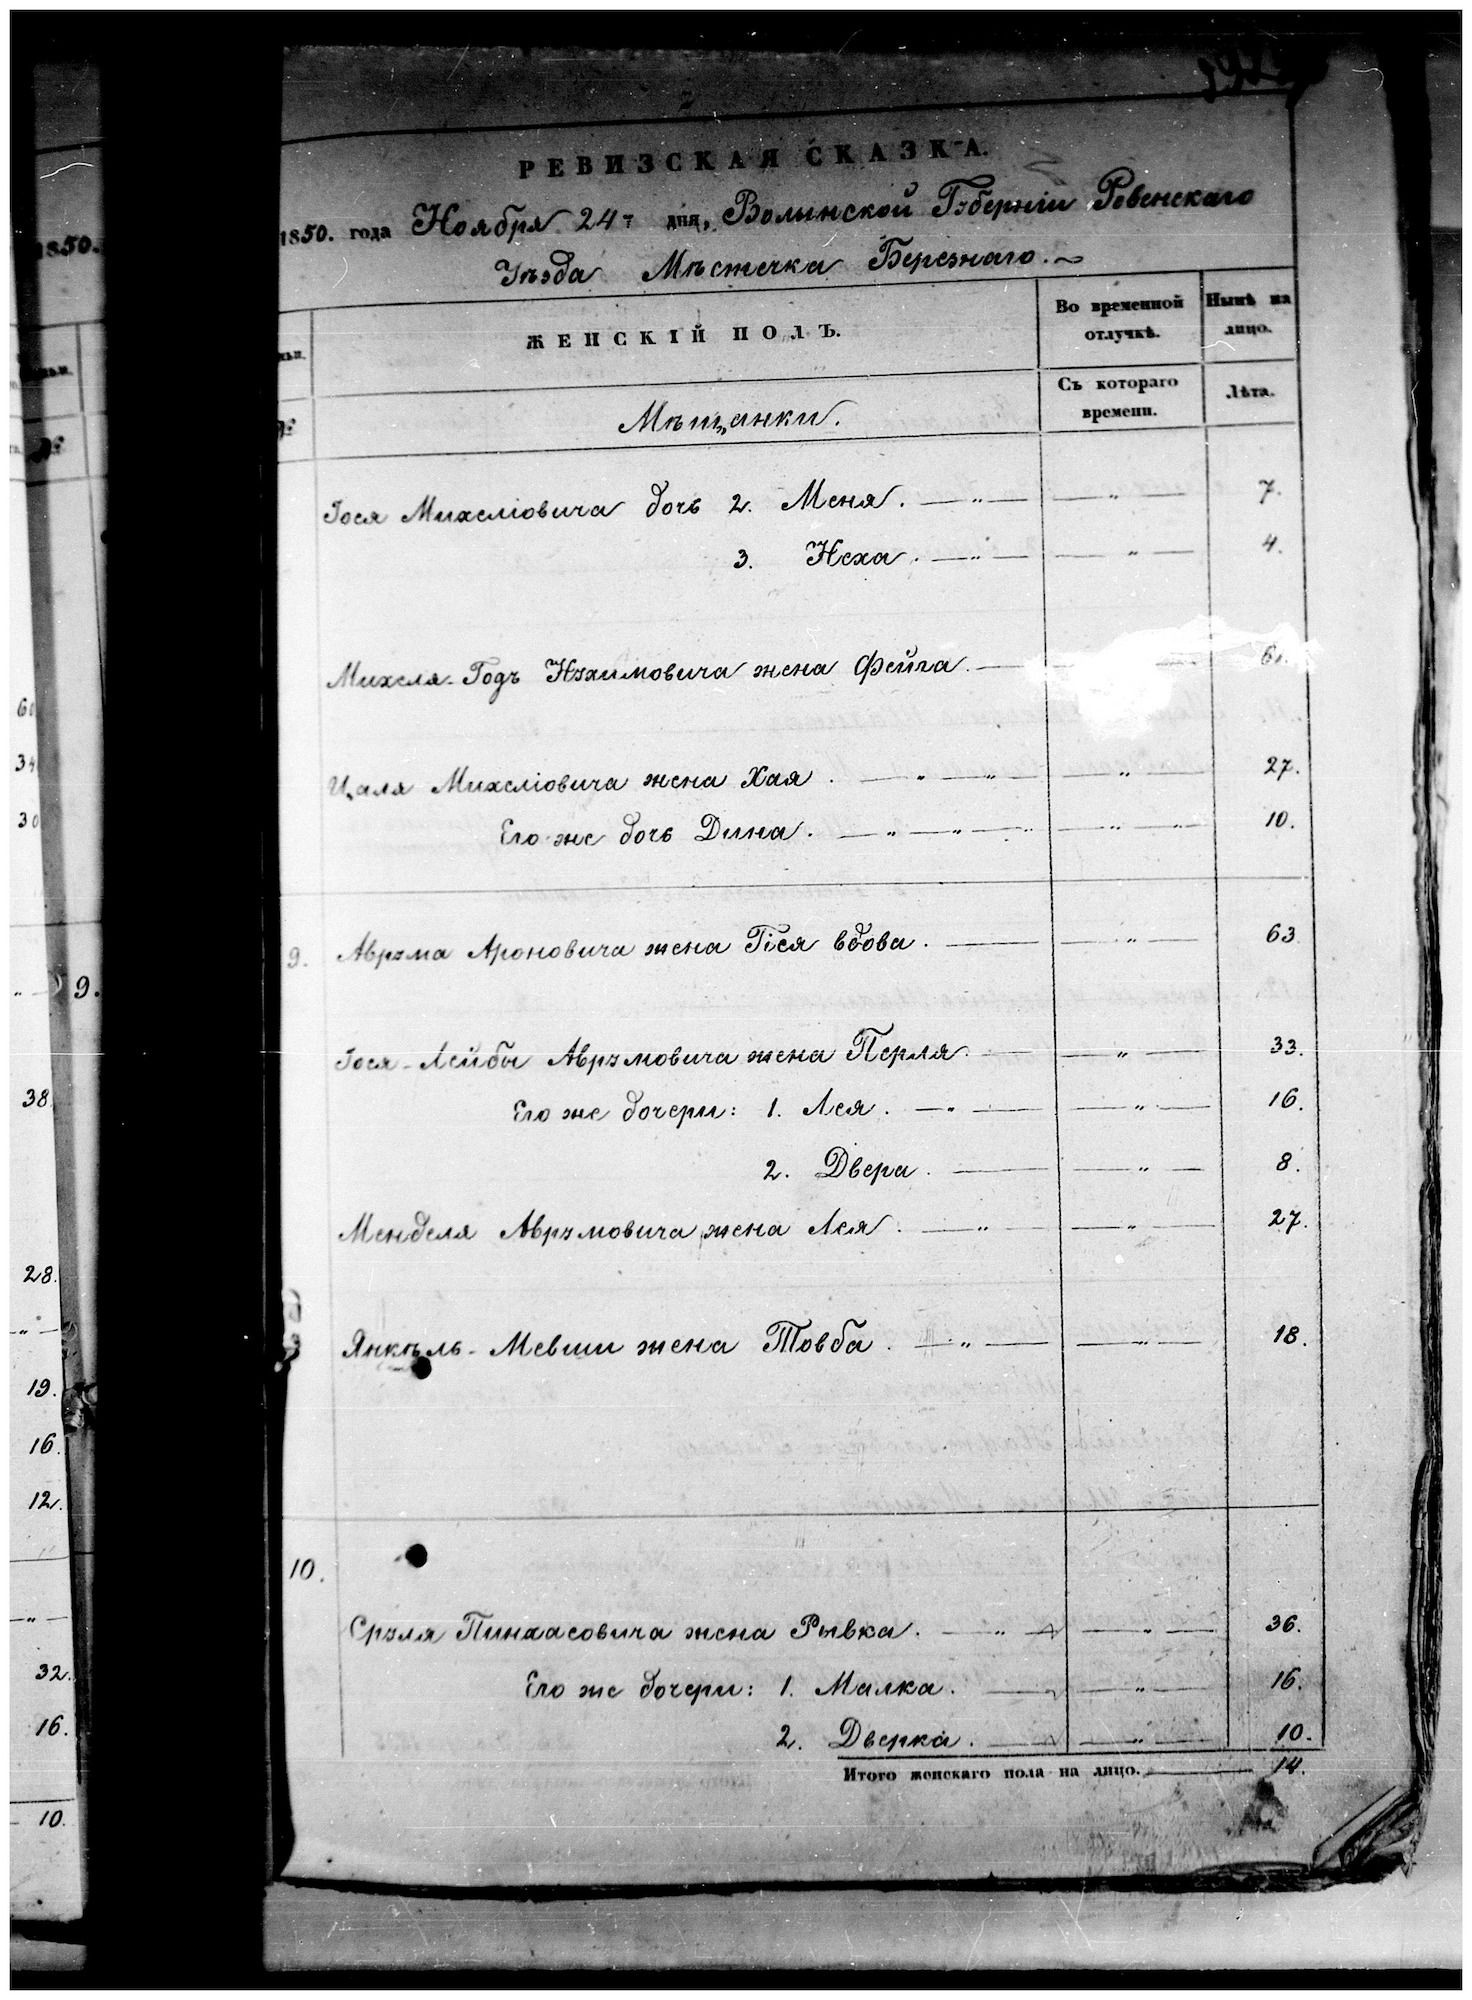 РЕВИЗСКАЯ СКАЗКА.
1850. года Ноября 24 дня, Волынской Губерніи Ровенскаго
Уѣзда Мѣстечка Березнаго.
ЖЕНСКІЙ ПОЛЪ.
Во временной отлучкѣ.
Нынѣ на лицо.
Съ котораго времени.
Лѣта.
Мѣщанки.
Іося Михеліовича дочь 2. Меня. 7.
3. Неха. 4.
Михеля-Годъ Нухимовича жена Фейга. 6
Цаля Михеліовича жена Хая. 27.
Его же дочь Дина. 10.
9. Аврума Ароновича жена Гіся вдова. 63
Іося-Лейбы Аврумовича жена Перля. 33.
Его же дочери: 1. Лея. 16.
2. Двера. 8.
Менделя Аврумовича жена Лея. 27.
Янкѣль-Мевши жена Товба. 18.
10.
Сруля Пинхасовича жена Рывка. 36.
Его же дочери: 1. Малка. 16.
2. Дверка. 10.
Итого женскаго пола на лицо. 14.
1850.
60
34
30
9.
38.
28.
19.
16.
12.
32.
16.
10.